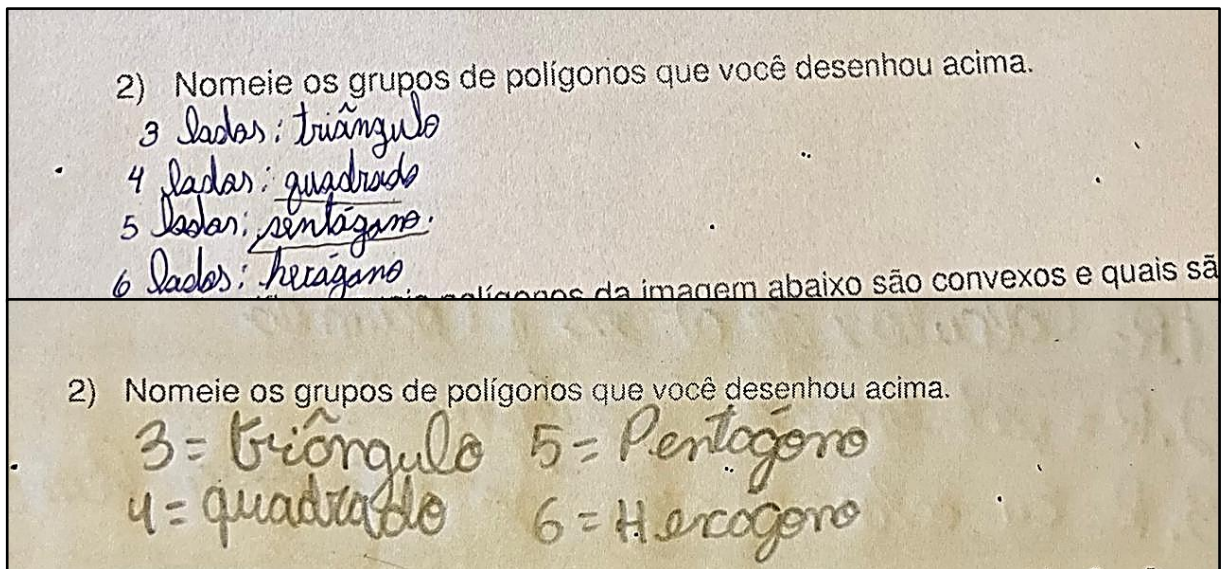 2) Nomeie os grupos de polígonos que você desenhou acima.
3 lados: triângulo
4 lados: quadrado
5 lados: pentágono.
6 lados: hexágono
polígonos da imagem abaixo são convexos e quais sã
2) Nomeie os grupos de polígonos que você desenhou acima.
3 = triângulo 5 = Pentágono
4 = quadrado 6 = Hexagono